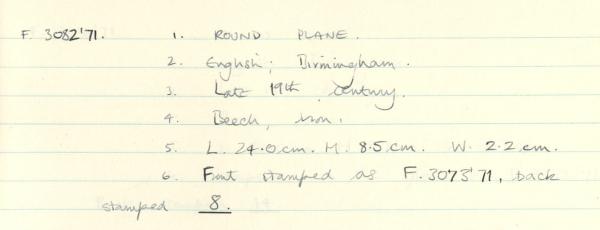 F. 3082'71. 1. ROUND PLANE.
2. English; Birmingham.
3. Late 19th century.
4. Beech, iron.
5. L. 24.0cm. H. 8.5cm. W. 2.2cm.
6. Front stamped as F.3073'71, back
stamped 8.